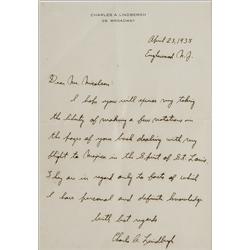 CHARLES A. LINDBERGH
25 BROADWAY
April 23, 1938
Englewood N. J.
Dear Mr.
I hope you will excuse my taking
the liberty of making a few notations in
the pages of your book dealing with my
flight to Mexico in the Spirit of St. Louis.
They are in regard only to facts of which
I have personal and definite knowledge
With best regards
Charles A. Lindbergh